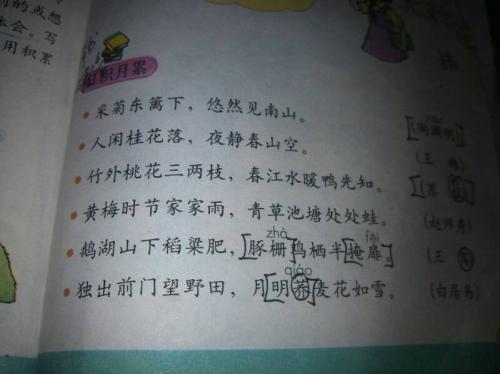 的或想
体会。写
用积累
日积月累
采菊东篱下，悠然见南山。[陶渊明]
人闲桂花落，夜静春山空。(王 维)
竹外桃花三两枝，春江水暖鸭先知。[苏
黄梅时节家家雨，青草池塘处处蛙。(赵师秀)
zhà fēi
鹅湖山下稻粱肥，[豚栅]鸡栖半[掩扉]。(王
qiáo
独出前门望野田，月[明荞]麦花如雪。(白居易)